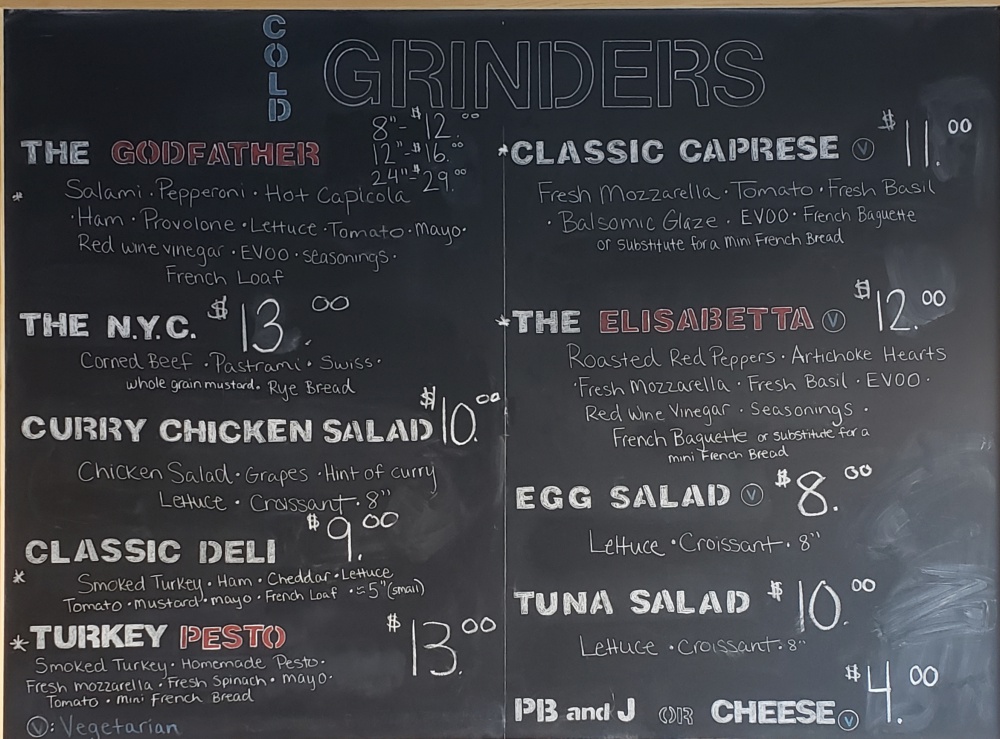 COLD GRINDERS
THE GODFATHER
8"-$12.00
12"-$16.00
24"-$29.00
* Salami · Pepperoni · Hot Capicola
· Ham · Provolone · Lettuce · Tomato · Mayo ·
Red wine vinegar · EVOO · seasonings ·
French Loaf
THE N.Y.C. $13.00
Corned Beef · Pastrami · Swiss ·
whole grain mustard · Rye Bread
CURRY CHICKEN SALAD $10.00
Chicken Salad · Grapes · Hint of curry
Lettuce · Croissant · 8"
CLASSIC DELI $9.00
* Smoked Turkey · Ham · Cheddar · Lettuce
Tomato · mustard · mayo · French Loaf · ≈5" (small)
*TURKEY PESTO $13.00
Smoked Turkey · Homemade Pesto ·
Fresh mozzarella · Fresh Spinach · mayo ·
Tomato · mini French Bread
Ⓥ: Vegetarian
*CLASSIC CAPRESE Ⓥ $11.00
Fresh Mozzarella · Tomato · Fresh Basil
· Balsomic Glaze · EVOO · French Baguette
or substitute for a Mini French Bread
*THE ELISABETTA Ⓥ $12.00
Roasted Red Peppers · Artichoke Hearts
· Fresh Mozzarella · Fresh Basil · EVOO ·
Red Wine Vinegar · Seasonings ·
French Baguette or substitute for a
mini French Bread
EGG SALAD Ⓥ $8.00
Lettuce · Croissant · 8"
TUNA SALAD $10.00
Lettuce · Croissant · 8"
PB and J OR CHEESE Ⓥ $4.00